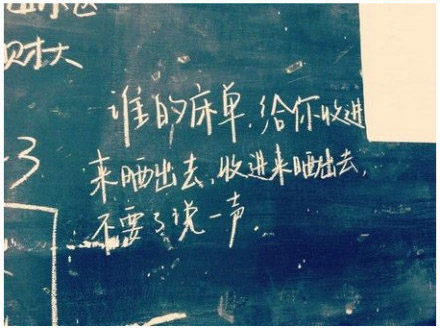 财大
谁的床单,给你收进
来晒出去,收进来晒出去,
3
不要了说一声.